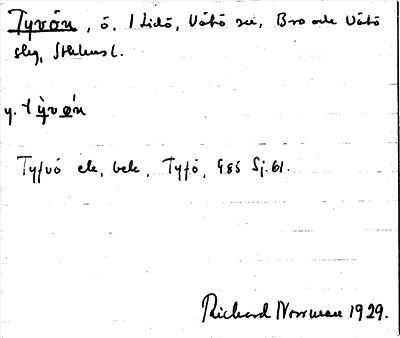 Tyvön, ö, i Lidö, Vätö sn, Bro och Vätö
slg, Sthlms l.
y. tỳvǿn
Tyfvö ek, bek, Tyfö, GSK Sj. 61.
Richard Norrman 1929.